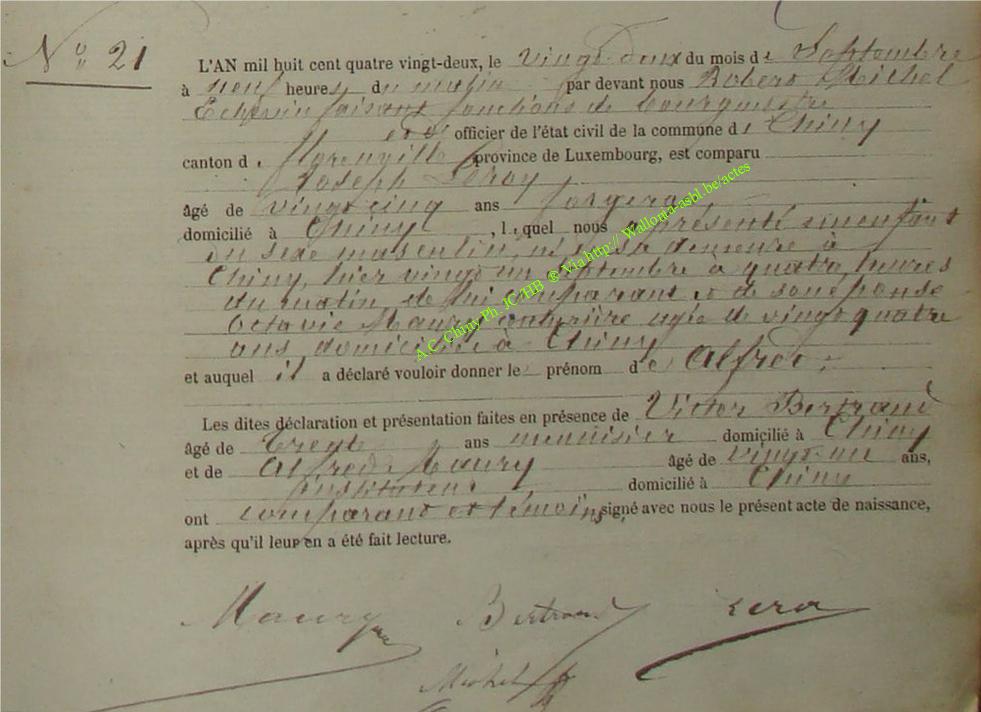 N° 21
L'AN mil huit cent quatre vingt-deux, le vingt deux du mois de Septembre
à neuf heures du matin par devant nous Robert Michel
Echevin faisant fonctions de bourgmestre
et d' officier de l'état civil de la commune de Chiny
canton de Florenville province de Luxembourg, est comparu
Joseph Leroy
âgé de vingt cinq ans forgeron
domicilié à Chiny, lequel nous a présenté un enfant
du sexe masculin, né en sa demeure à
Chiny, hier vingt un Septembre à quatre heures
du matin, de lui comparant et de son épouse
Octavie Maury couturière agée de vingt quatre
ans, domiciliée à Chiny
et auquel il a déclaré vouloir donner le prénom de Alfred.
Les dites déclaration et présentation faites en présence de Victor Bertrand
âgé de trente ans menuisier domicilié à Chiny
et de Alfred Maury âgé de vingt un ans,
instituteur domicilié à Chiny
ont comparant et témoins, signé avec nous le présent acte de naissance,
après qu'il leur en a été fait lecture.
Maury Bertrand Leroy
Michel
A.C. Chiny Ph. JC/HB ® Via http:// Wallonia-asbl.be/actes